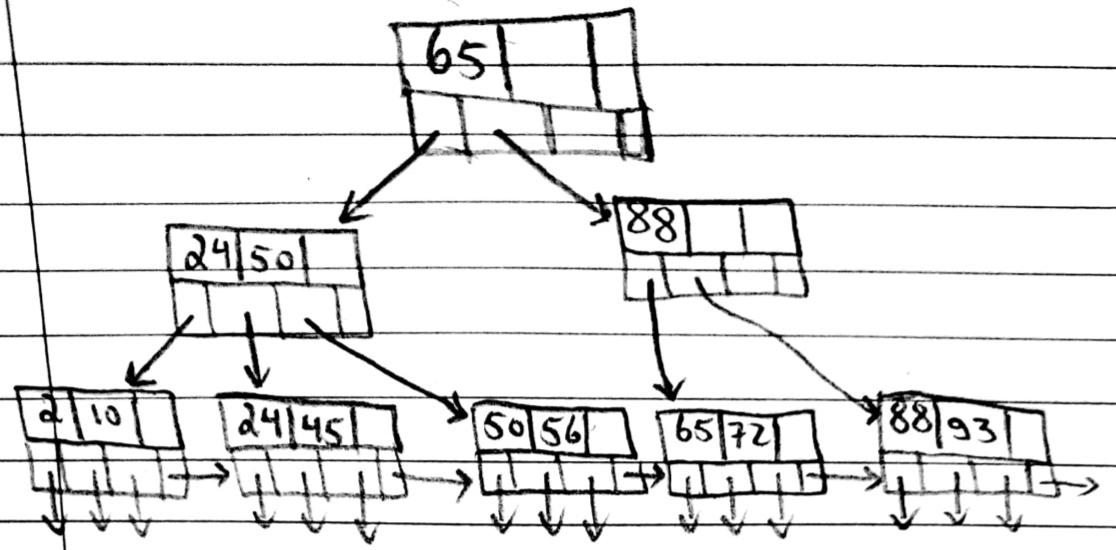 65
24 50
88
2 10
24 45
50 56
65 72
88 93